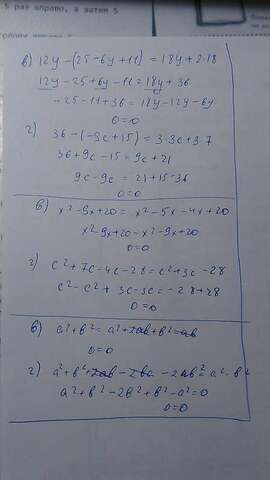 5 раз вправо, а затем 5
в) 12y-(25-6y+11)=18y+2·18
12y-25+6y-11=18y+36
-25-11+36=18y-12y-6y
0=0
г) 36-(-9c+15)=3·3c+3·7
36+9c-15=9c+21
9c-9c=21+15-36
0=0
в) x²-9x+20=x²-5x-4x+20
x²-9x+20-x²-9x+20
0=0
г) c²+7c-4c-28=c²+3c-28
c²-c²+3c-3c=-28+28
0=0
в) a²+b²=a²+2ab+b²=ab
0=0
г) a²+b²+2ab-2ba-2ab²=a²-b²
a²+b²-2b²+b²-a²=0
0=0